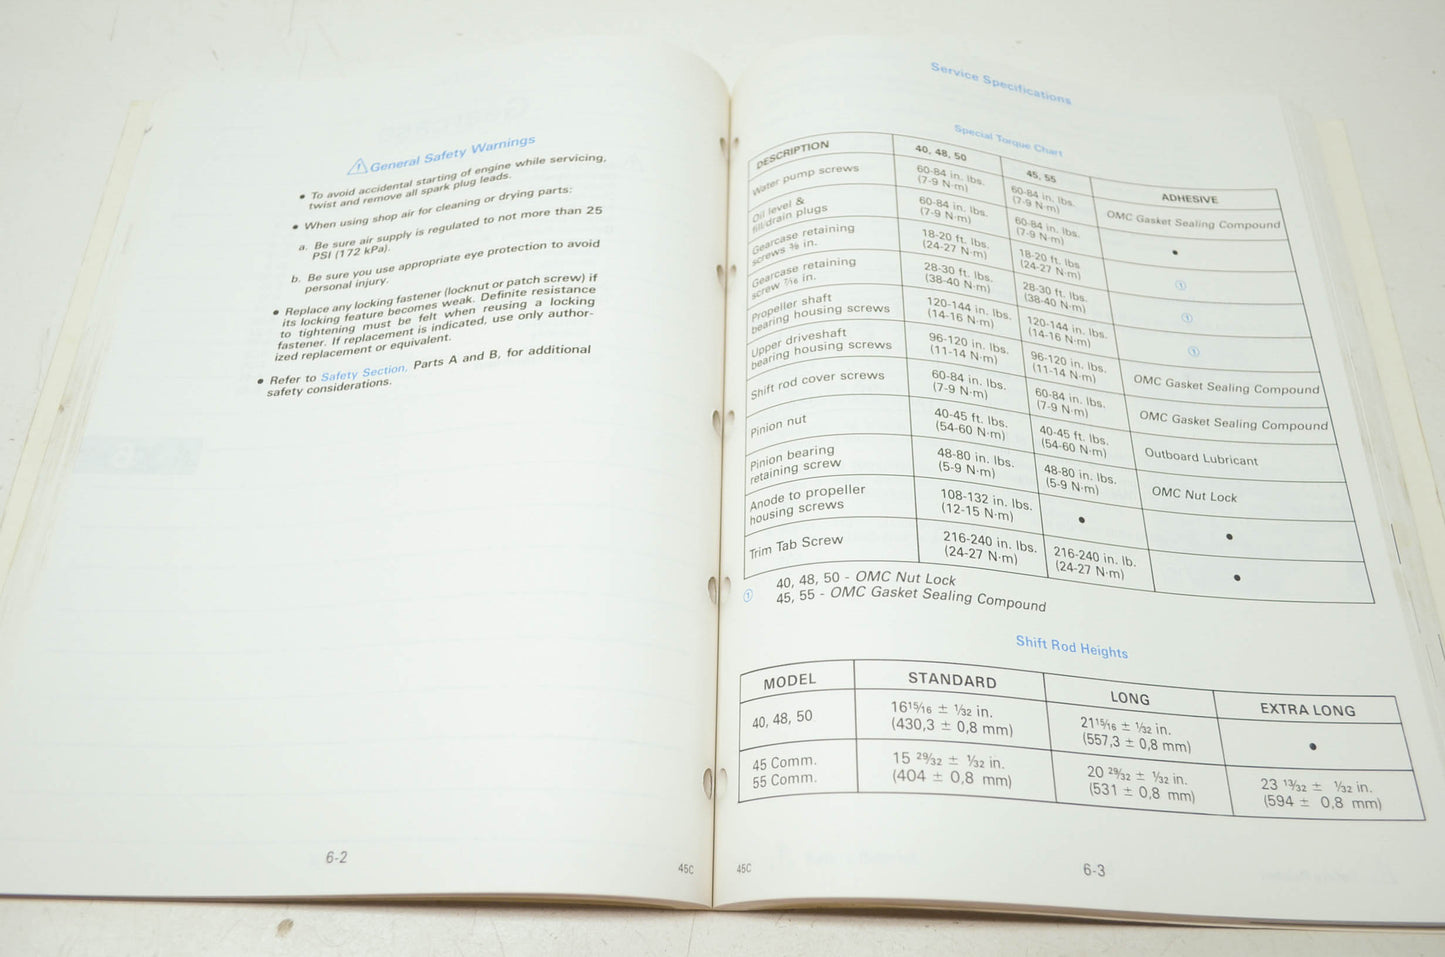 General Safety Warnings
• To avoid accidental starting of engine while servicing,
twist and remove all spark plug leads.
• When using shop air for cleaning or drying parts:
a. Be sure air supply is regulated to not more than 25
PSI (172 kPa).
b. Be sure you use appropriate eye protection to avoid
personal injury.
• Replace any locking fastener (locknut or patch screw) if
its locking feature becomes weak. Definite resistance
to tightening must be felt when reusing a locking
fastener. If replacement is indicated, use only author-
ized replacement or equivalent.
• Refer to Safety Section, Parts A and B, for additional
safety considerations.
6-2
45C
Service Specifications
Special Torque Chart
DESCRIPTION 40, 48, 50 45, 55 ADHESIVE
Water pump screws 60-84 in. lbs. 60-84 in. lbs. OMC Gasket Sealing Compound
(7-9 N·m) (7-9 N·m)
Oil level & 60-84 in. lbs. 60-84 in. lbs. •
fill/drain plugs (7-9 N·m) (7-9 N·m)
Gearcase retaining 18-20 ft. lbs. 18-20 ft. lbs ①
screws 3/8 in. (24-27 N·m) (24-27 N·m)
Gearcase retaining 28-30 ft. lbs. 28-30 ft. lbs. ①
screw 7/16 in. (38-40 N·m) (38-40 N·m)
Propeller shaft 120-144 in. lbs. 120-144 in. lbs. ①
bearing housing screws (14-16 N·m) (14-16 N·m)
Upper driveshaft 96-120 in. lbs. 96-120 in. lbs. OMC Gasket Sealing Compound
bearing housing screws (11-14 N·m) (11-14 N·m)
Shift rod cover screws 60-84 in. lbs. 60-84 in. lbs. OMC Gasket Sealing Compound
(7-9 N·m) (7-9 N·m)
Pinion nut 40-45 ft. lbs. 40-45 ft. lbs. Outboard Lubricant
(54-60 N·m) (54-60 N·m)
Pinion bearing 48-80 in. lbs. 48-80 in. lbs. OMC Nut Lock
retaining screw (5-9 N·m) (5-9 N·m)
Anode to propeller 108-132 in. lbs. • •
housing screws (12-15 N·m)
Trim Tab Screw 216-240 in. lbs. 216-240 in. lb. •
(24-27 N·m) (24-27 N·m)
① 40, 48, 50 - OMC Nut Lock
45, 55 - OMC Gasket Sealing Compound
Shift Rod Heights
MODEL STANDARD LONG EXTRA LONG
40, 48, 50 16 15/16 ± 1/32 in. 21 15/16 ± 1/32 in. •
(430,3 ± 0,8 mm) (557,3 ± 0,8 mm)
45 Comm. 15 29/32 ± 1/32 in. 20 29/32 ± 1/32 in. 23 13/32 ± 1/32 in.
55 Comm. (404 ± 0,8 mm) (531 ± 0,8 mm) (594 ± 0,8 mm)
45C
6-3